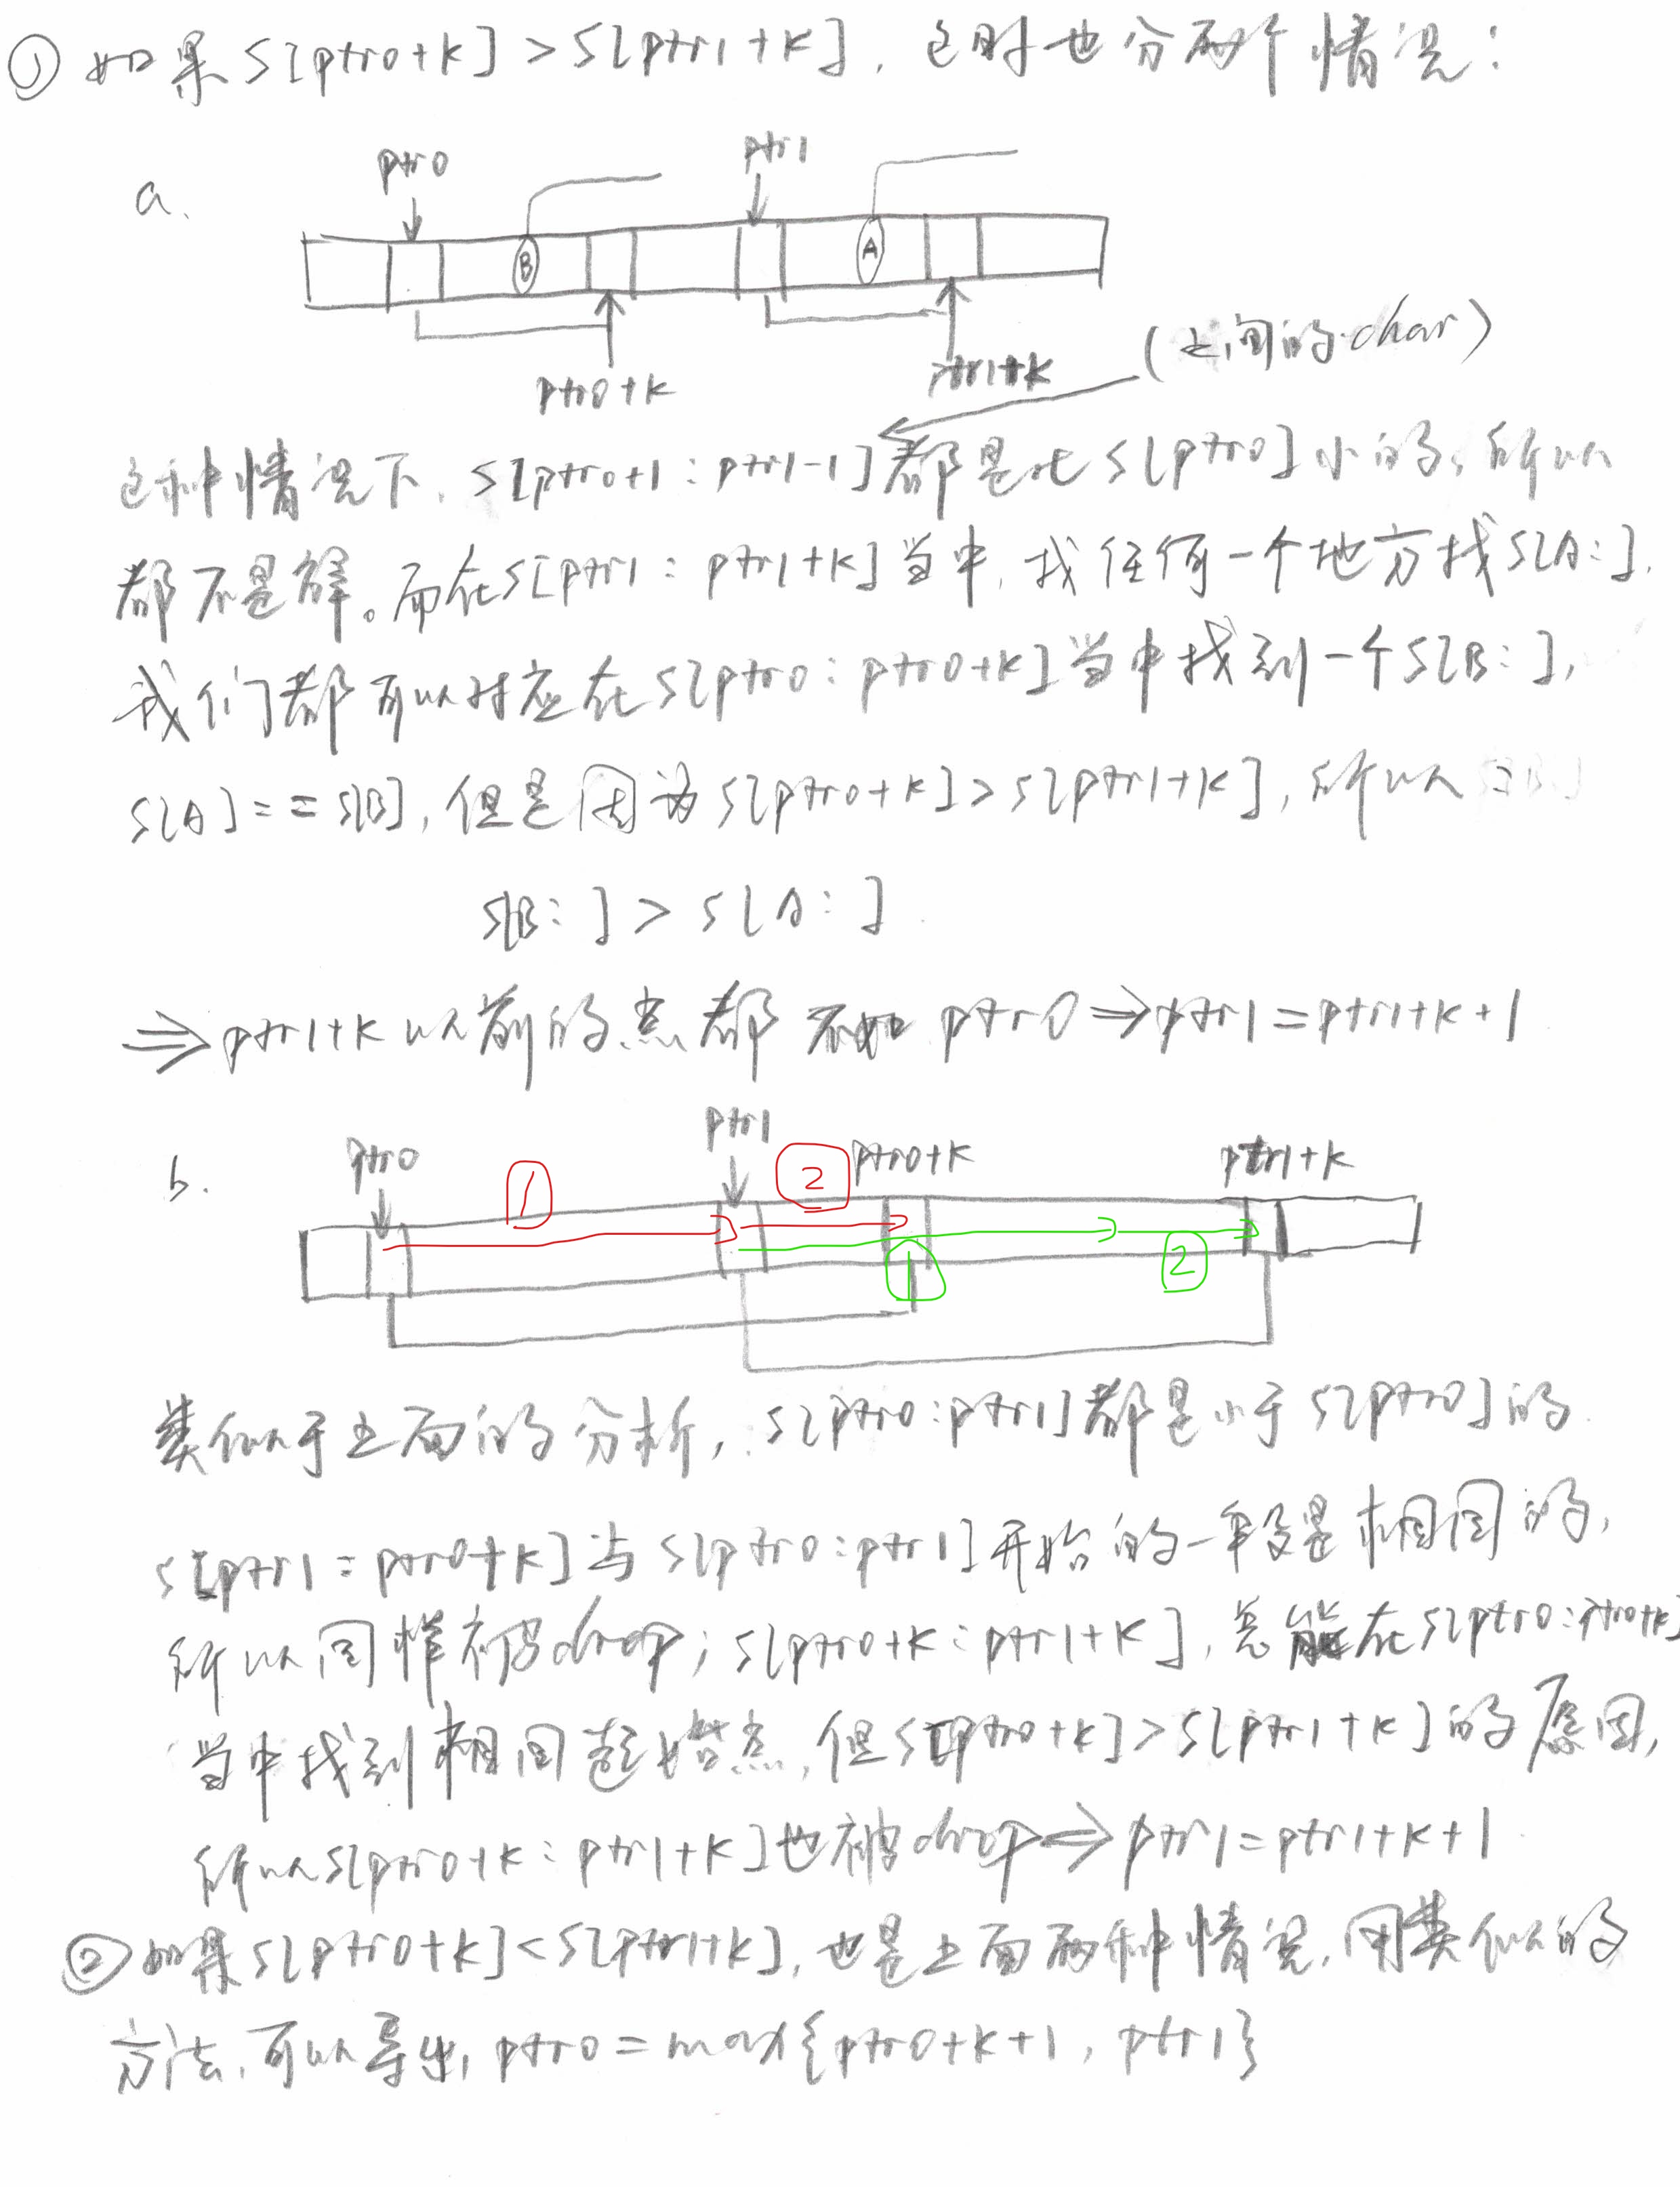 ① 如果 S[ptr0+k] > S[ptr1+k]，这时也分两个情况：
ptr0
ptr1
a.
B
A
ptr0+k
ptr1+k
(之间的char)
这种情况下，S[ptr0+1 : ptr1-1]都是比S[ptr0]小的，所以
都不是解。而在S[ptr1 : ptr1+k]当中，找任何一个地方找S[A:]，
我们都可以对应在S[ptr0 : ptr0+k]当中找到一个S[B:]，
S[A] == S[B]，但是因为S[ptr0+k] > S[ptr1+k]，所以
S[B:] > S[A:]
⇒ ptr1+k以前的点都不如ptr0 ⇒ ptr1 = ptr1+k+1
ptr0
ptr1
ptr0+k
ptr1+k
b.
1
2
1
2
类似于上面的分析，S[ptr0:ptr1]都是小于S[ptr0]的
S[ptr1 : ptr0+k]与S[ptr0:ptr1]开始的一段是相同的，
所以同样被drop；S[ptr0+k : ptr1+k]，总能在S[ptr0:ptr0+k]
当中找到相同起始点，但S[ptr0+k] > S[ptr1+k]的原因，
所以S[ptr0+k : ptr1+k]也被drop ⇒ ptr1 = ptr1+k+1
② 如果S[ptr0+k] < S[ptr1+k]，也是上面两种情况，用类似的
方法，可以导出，ptr0 = max{ptr0+k+1, ptr1}